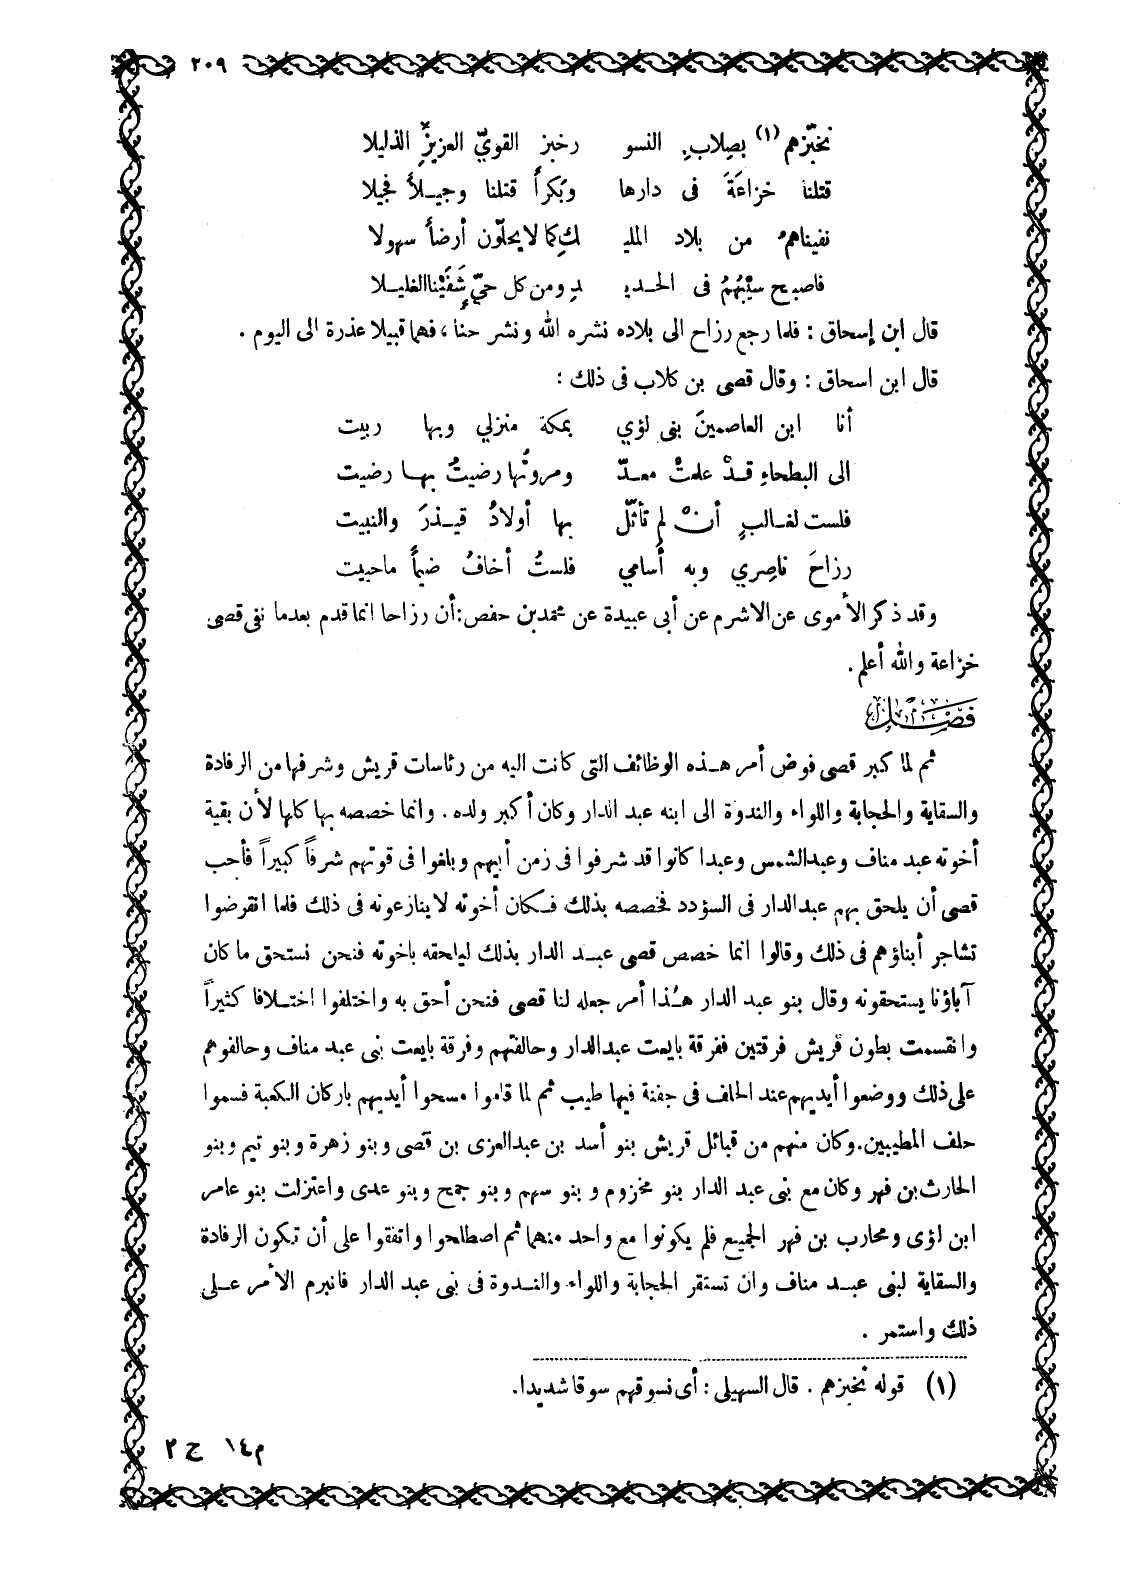 ٢٠٩
نخبّزهم (١) بصِلابِ النسو رخبز القويّ العزيزِ الذليلا
قتلنا خزاعَةَ فى دارها وبَكراً قتلنا وجيــلاً فجيلا
نفيناهمُ من بلاد المليـ ـكِ كما لا يحلّون أرضاً سهولا
فاصبح سيْبُهُمُ فى الحـديـ ـدِ ومن كل حيٍّ شَفَيْنا الغليــلا
قال ابن إسحاق : فلما رجع رزاح الى بلاده نشره الله ونشر حنا ، فهما قبيلا عذرة الى اليوم .
قال ابن اسحاق : وقال قصى بن كلاب فى ذلك :
أنا ابن العاصمينَ بنى لؤي بمكة منزلي وبها ربيت
الى البطحاءِ قـدْ علمتْ معـدّ ومروتُها رضيتُ بهـا رضيت
فلست لغـالبٍ أنْ لم تأثّل بها أولادُ قيـذرَ والنبيت
رزاحَ ناصِري وبه أُسامي فلستُ أخافُ ضيماً ماحييت
وقد ذكر الأموى عن الاشرم عن أبى عبيدة عن محمد بن حفص : أن رزاحا انما قدم بعدما نفى قصى
خزاعة والله أعلم .
فصل
ثم لما كبر قصى فوض أمر هـذه الوظائف التى كانت اليه من رئاسات قريش وشرفها من الرفادة
والسقاية والحجابة واللواء والندوة الى ابنه عبد الدار وكان أكبر ولده . وانما خصصه بها كلها لأن بقية
أخوته عبد مناف وعبدالشمس وعبدا كانوا قد شرفوا فى زمن أبيهم وبلغوا فى قوتهم شرفاً كبيراً فأحب
قصى أن يلحق بهم عبدالدار فى السؤدد فخصصه بذلك فـكان أخوته لا ينازعونه فى ذلك فلما انقرضوا
تشاجر أبناؤهم فى ذلك وقالوا انما خصص قصى عبـد الدار بذلك ليلحقه باخوته فنحن نستحق ما كان
آباؤنا يستحقونه وقال بنو عبد الدار هـٰذا أمر جعله لنا قصى فنحن أحق به واختلفوا اختـلافا كثيراً
وانقسمت بطون قريش فرقتين ففرقة بايعت عبدالدار وحالفتهم وفرقة بايعت بنى عبد مناف وحالفوهم
على ذلك ووضعوا أيديهم عند الحلف فى جفنة فيها طيب ثم لما قاموا مسحوا أيديهم باركان الكعبة فسموا
حلف المطيبين . وكان منهم من قبائل قريش بنو أسد بن عبدالعزى بن قصى وبنو زهرة وبنو تيم وبنو
الحارث بن فهر وكان مع بنى عبد الدار بنو مخزوم وبنو سهم وبنو جمح وبنو عدى واعتزلت بنو عامر
ابن لؤى ومحارب بن فهر الجميع فلم يكونوا مع واحد منهما ثم اصطلحوا واتفقوا على أن تكون الرفادة
والسقاية لبنى عبـد مناف وان تستقر الحجابة واللواء والنـدوة فى بنى عبد الدار فانبرم الأمر عـلى
ذلك واستمر .
(١) قوله نخبزهم . قال السهيلى : أى نسوقهم سوقا شديدا .
م١٤ ج ٢